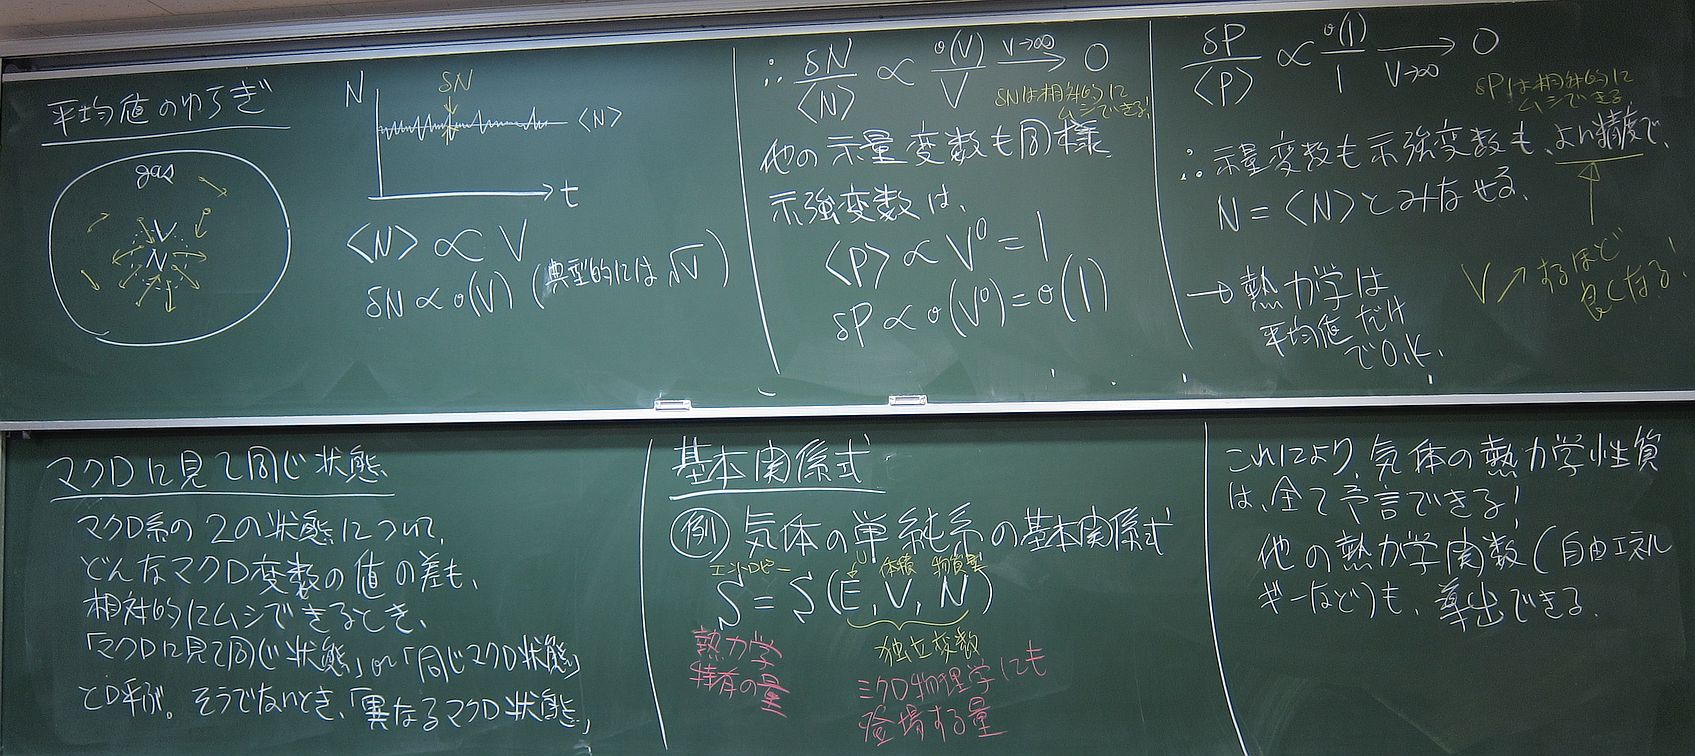 平均値のゆらぎ
gas
V
N
N
δN
<N>
t
<N> ∝ V
δN ∝ o(V) (典型的には √V)
∴ δN/<N> ∝ o(V)/V →(V→∞) 0
δNは相対的に
ムシできる!
他の示量変数も同様.
示強変数は、
<P> ∝ V⁰ = 1
δP ∝ o(V⁰) = o(1)
δP/<P> ∝ o(1)/1 →(V→∞) 0
δPは相対的に
ムシできる
∴ 示量変数も示強変数も、よい精度で、
N = <N> とみなせる、
V ↗ するほど
良くなる!
→ 熱力学は
平均値だけ
でO.K.
マクロに見て同じ状態
マクロ系の2の状態について、
どんなマクロ変数の値の差も、
相対的にムシできるとき、
「マクロに見て同じ状態」or「同じマクロ状態」
と呼ぶ。そうでないとき、「異なるマクロ状態」
基本関係式
例 気体の単純系の基本関係式
エントロピー
U 体積 物質量
S = S(E, V, N)
独立変数
熱力学
特有の量
ミクロ物理学にも
登場する量
これにより、気体の熱力学性質
は、全て予言できる!
他の熱力学関数(自由エネル
ギーなど)も、導出できる.